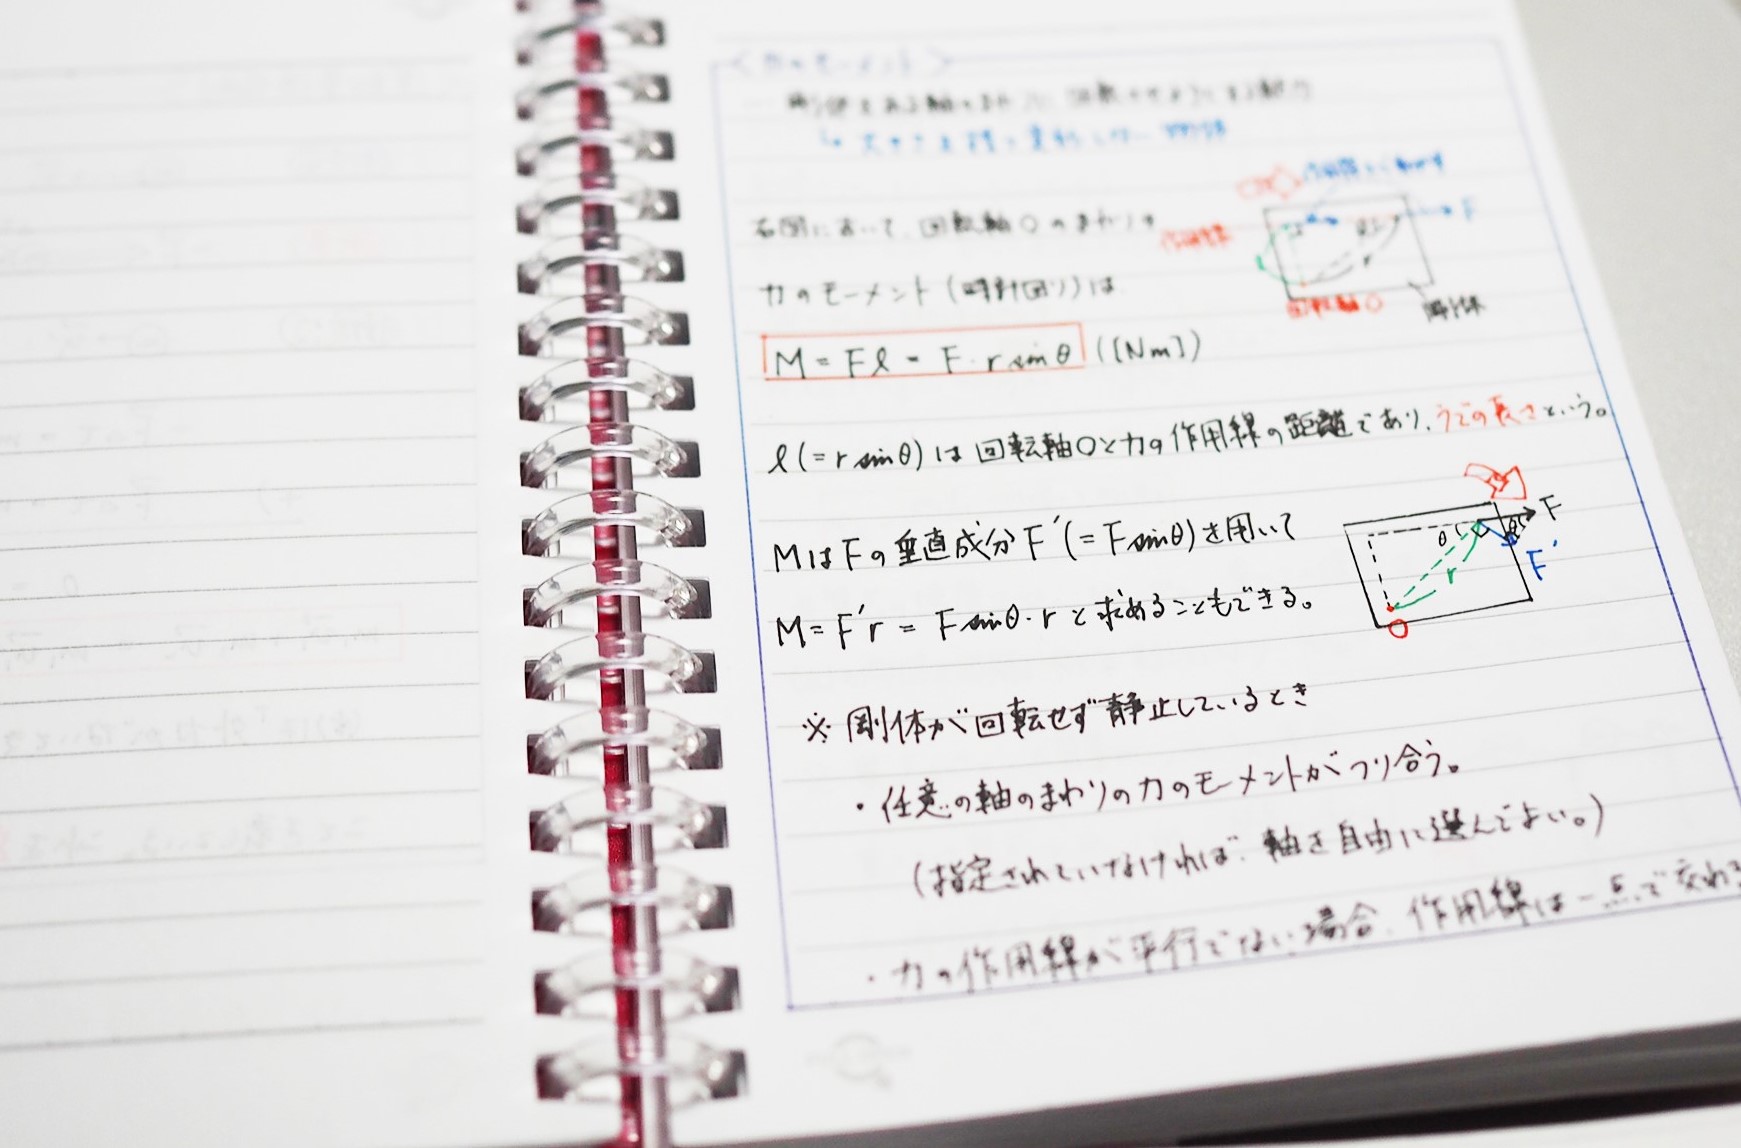 <力のモーメント>
剛体をある軸のまわりに回転させようとする能力
右図において、回転軸Oのまわりの
力のモーメント(時計回り)は
M = Fl = F・r sinθ ([Nm])
F
回転軸O
剛体
l(=r sinθ)は回転軸Oと力の作用線の距離であり、うでの長さという。
MはFの垂直成分F′(=F sinθ)を用いて
M=F′r = F sinθ・r と求めることもできる。
F
θ
θ
F′
r
O
※ 剛体が回転せず静止しているとき
・任意の軸のまわりの力のモーメントがつり合う。
(指定されていなければ、軸を自由に選んでよい。)
・力の作用線が平行でない場合、作用線は一点で交わる